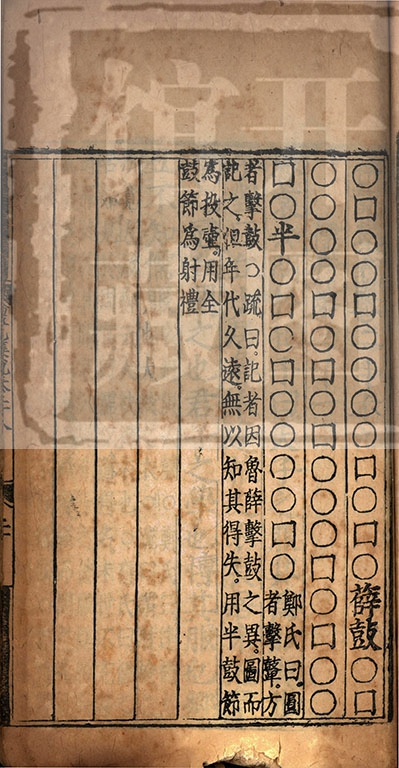 ○□○○□○○○○□○□○薛鼓○□
○○○○□○□○□○○○□○□○○
□○半○□○□○○○○□○鄭氏曰。圓
者擊鼙。方
者擊鼓○疏曰。記者因魯薛擊鼓之異。圖而
記之。但年代久遠。無以知其得失。用半鼓節
為投壺。用全
鼓節為射禮